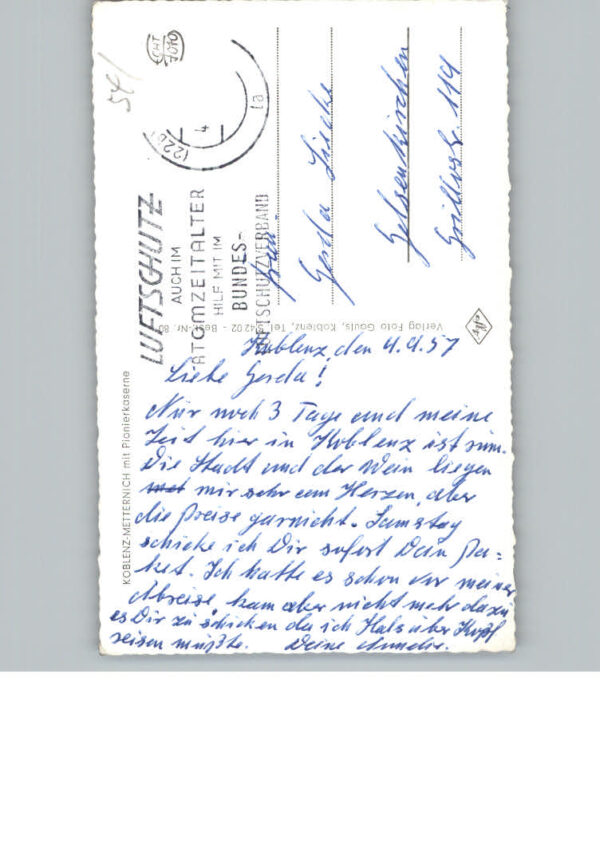 ECHT
FOTO
54/
(22b)
4
la
LUFTSCHUTZ
AUCH IM
ATOMZEITALTER
HILF MIT IM
BUNDES-
LUFTSCHUTZVERBAND
Frau
Gerda
Gelsenkirchen
Grillostr. 119
Verlag Foto Gauls, Koblenz, Tel. 2
KOBLENZ-METTERNICH mit Pionierkaserne
Koblenz, den 4.4.57
Liebe Gerda!
Nur noch 3 Tage und meine
Zeit hier in Koblenz ist rum.
Die Stadt und der Wein liegen
mir sehr am Herzen, aber
die Preise garnicht. Samstag
schicke ich Dir sofort Dein Pa-
ket. Ich hatte es schon vor meiner
Abreise, kam aber nicht mehr dazu
es Dir zu schicken da ich Hals über Kopf
reisen mußte. Deine